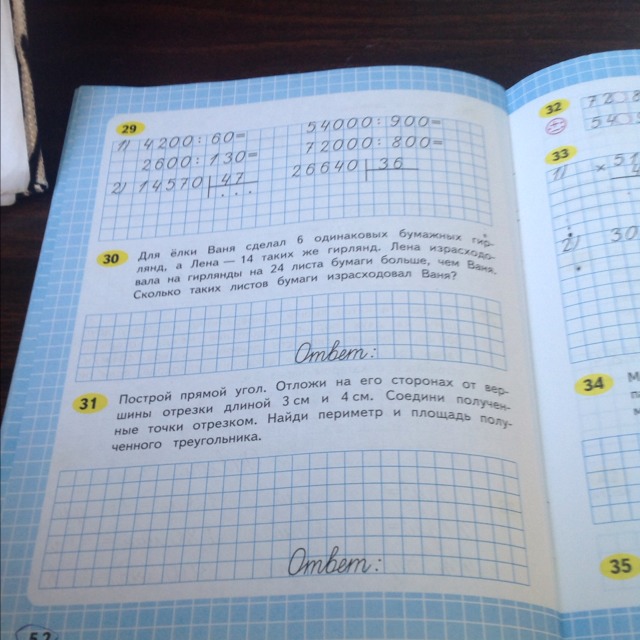 29
1) 4200:60= 54000:900=
2600:130= 72000:800=
2) 14570 47 26640 36
. . .
30 Для ёлки Ваня сделал 6 одинаковых бумажных гир-
лянд, а Лена — 14 таких же гирлянд. Лена израсходо-
вала на гирлянды на 24 листа бумаги больше, чем Ваня.
Сколько таких листов бумаги израсходовал Ваня?
Ответ:
31 Построй прямой угол. Отложи на его сторонах от вер-
шины отрезки длиной 3 см и 4 см. Соедини получен-
ные точки отрезком. Найди периметр и площадь полу-
ченного треугольника.
Ответ:
52
32
33
1)
2) 30
34
35